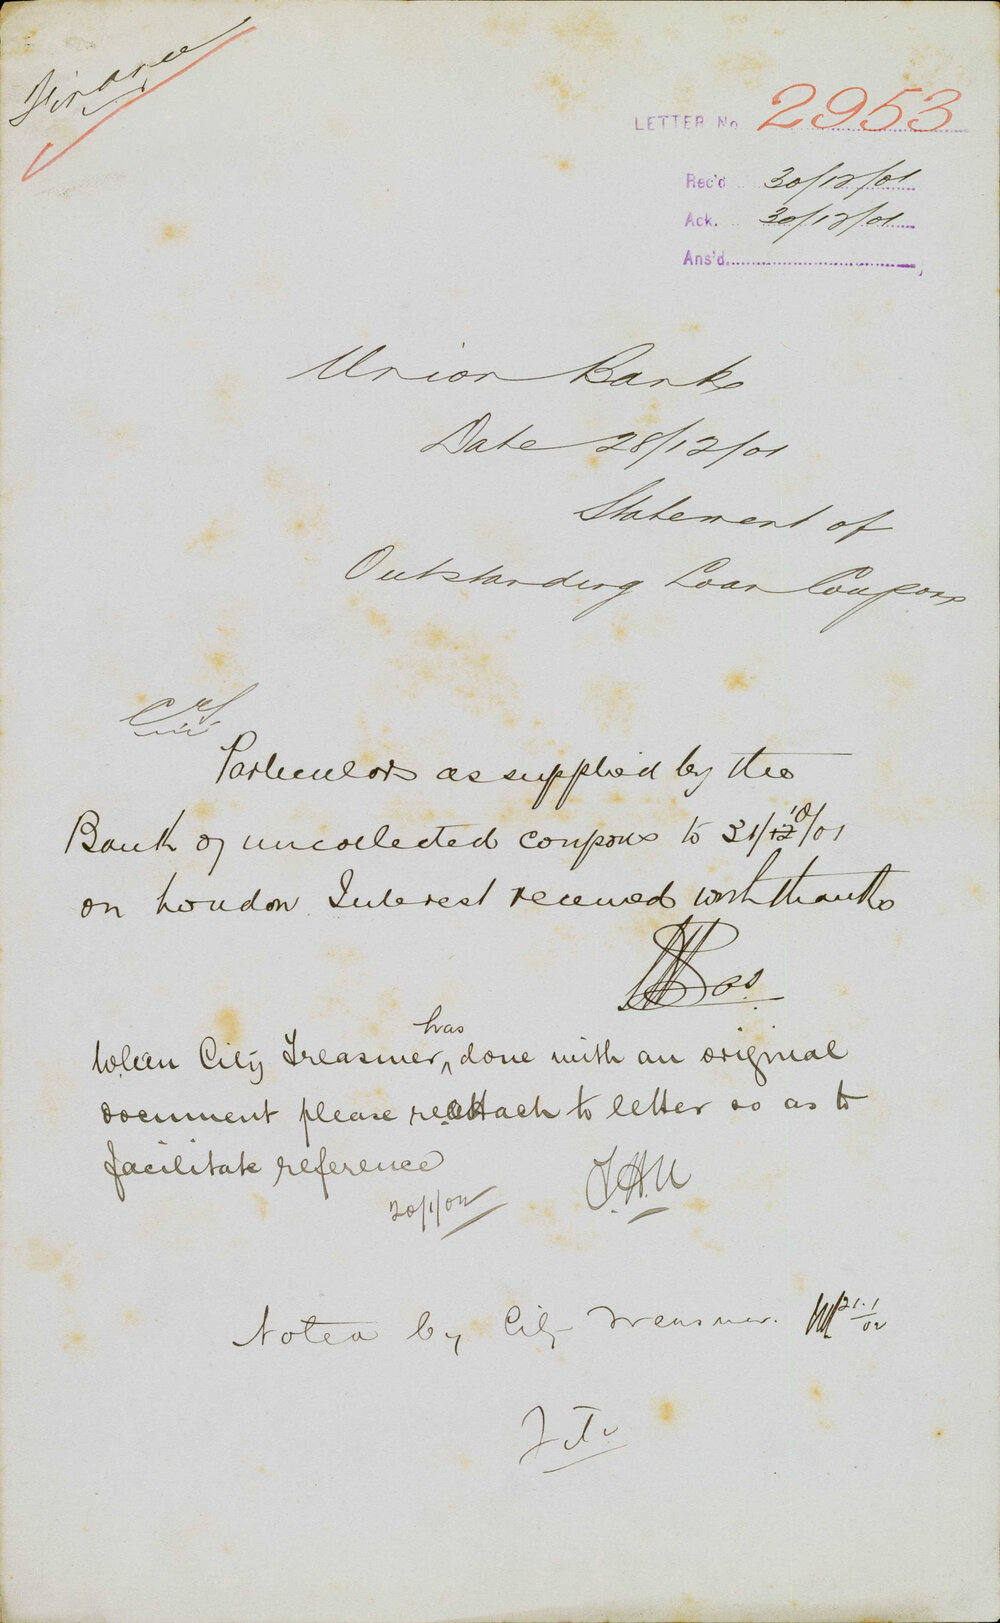 Finance
LETTER No 2953
Rec'd 30/12/01
Ack. 30/12/01
Ans'd
Union Bank
Date 28/12/01
Statement of
Outstanding Loan Coupons
Particulars as supplied by the
Bank of uncollected coupons to 31/10/01
on London Interest received with thanks
When City Treasurer has done with an original
document please reattach to letter so as to
facilitate reference
20/1/02
Noted by City Treasurer. 21.1/02